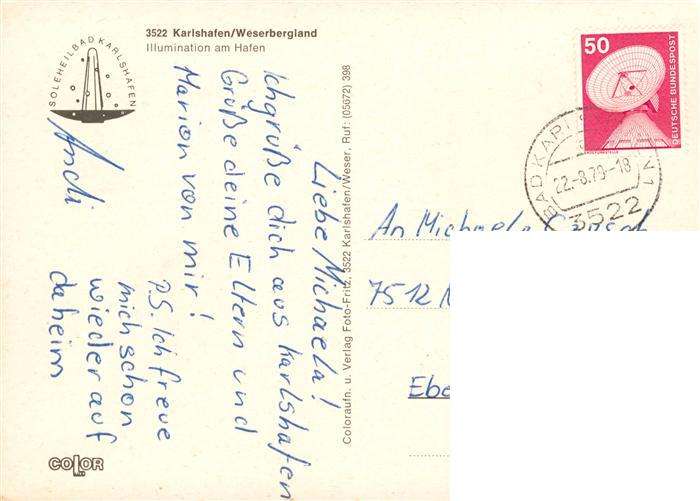 3522 Karlshafen/Weserbergland
Illumination am Hafen
SOLEHEILBAD KARLSHAFEN
Liebe Michaela!
Ich grüße dich aus Karlshafen
Grüße deine Eltern und
Marion von mir!
P.S. Ich freue
mich schon
wieder auf
daheim
Andi
COLOR
Coloraufn. u. Verlag Foto-Fritz, 3522 Karlshafen/Weser, Ruf: (05672) 398
50
DEUTSCHE BUNDESPOST
BAD KARLS
22.-8.79-18
3522
An Michaela
7512
Ebe